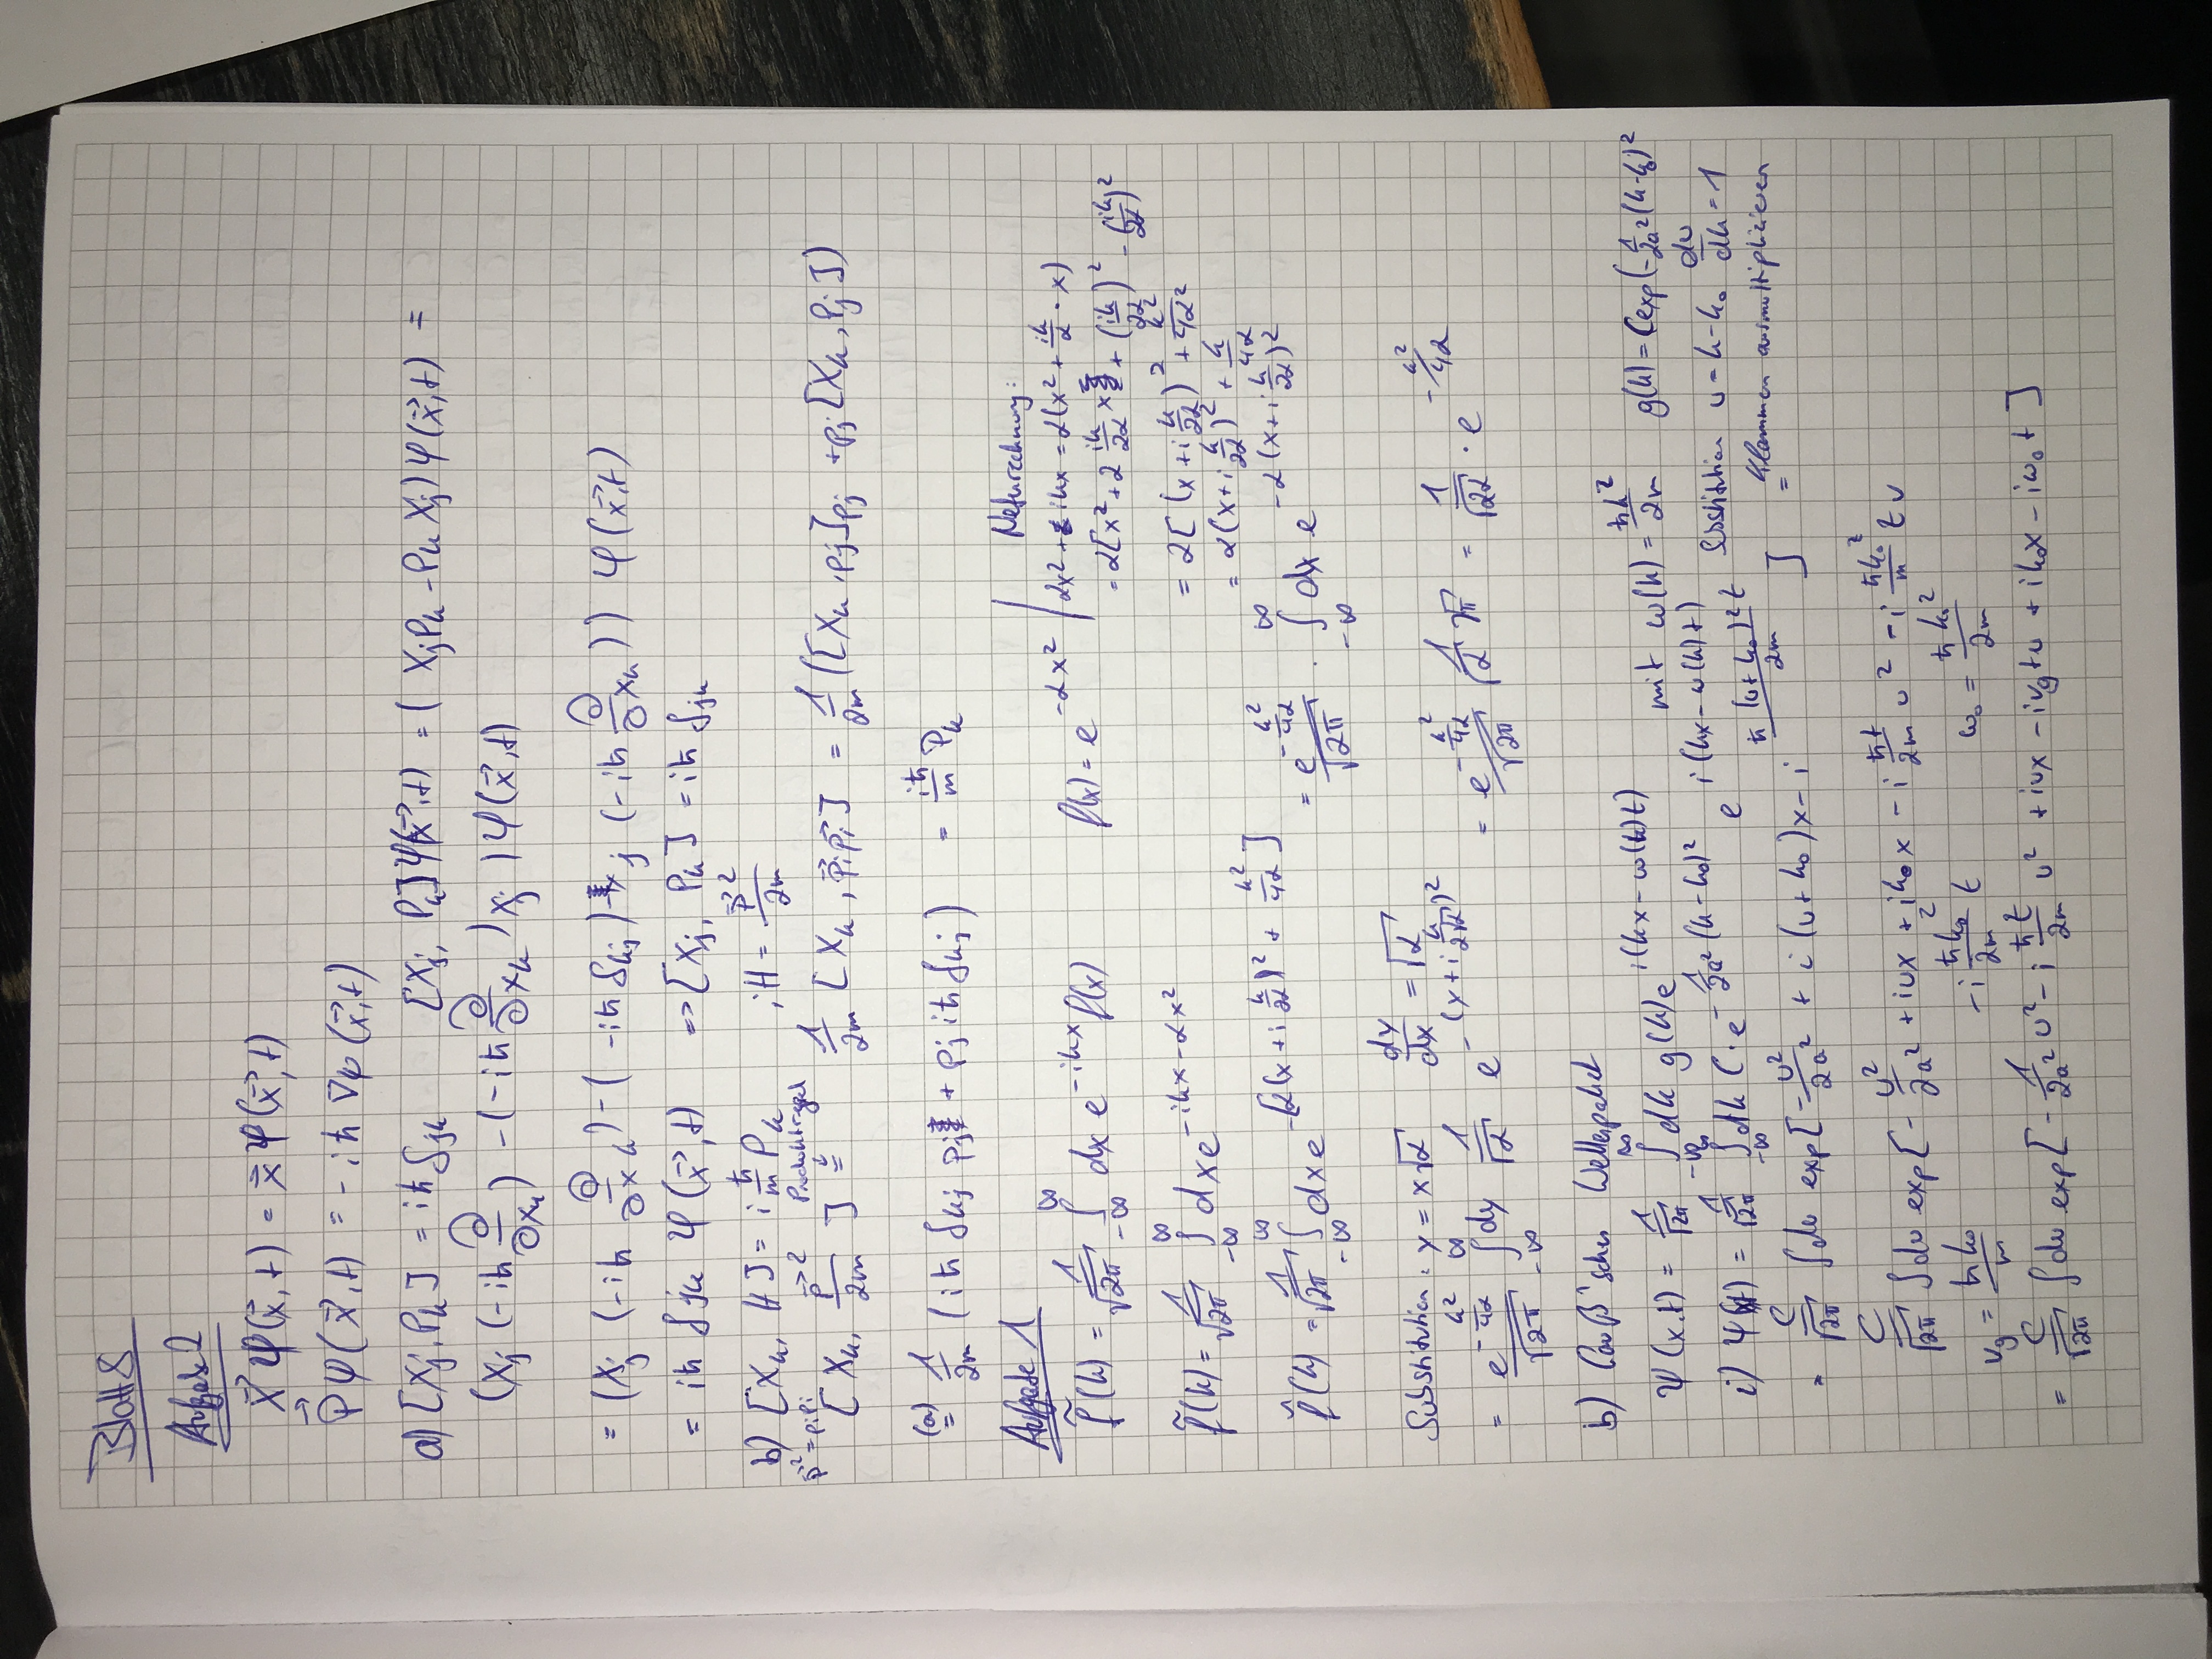 Blatt 8
Aufgabe 2
X⃗ ψ(x⃗, t) = x⃗ ψ(x⃗, t)
P⃗ ψ(x⃗, t) = -iħ ∇ψ(x⃗, t)
a) [X_j, P_k] = iħ δ_jk   [X_j, P_k] ψ(x⃗, t) = (X_j P_k - P_k X_j) ψ(x⃗, t) =
(X_j (-iħ ∂/∂x_k) - (-iħ ∂/∂x_k) x_j) ψ(x⃗, t)
= (X_j (-iħ ∂/∂x_k) - (-iħ δ_kj) - x_j (-iħ ∂/∂x_k)) ψ(x⃗, t)
= iħ δ_jk ψ(x⃗, t)   => [X_j, P_k] = iħ δ_jk
b) [X_k, H] = i ħ/m P_k   ; H = p⃗²/2m
p⃗² = p_i p_i   Produktregel
[X_k, p⃗²/2m] = 1/2m [X_k, p⃗_i p⃗_i] = 1/2m ([X_k, p_j] p_j + p_j [X_k, P_j])
(a)= 1/2m (iħ δ_kj p_j + p_j iħ δ_kj) = iħ/m P_k
Aufgabe 1
f̃(k) = 1/√2π ∫_-∞^∞ dx e^(-ikx) f(x)   f(x) = e^(-αx²)
f̃(k) = 1/√2π ∫_-∞^∞ dx e^(-ikx - αx²)
f̃(k) = 1/√2π ∫_-∞^∞ dx e^(-[α(x + i k/2α)² + k²/4α]) = e^(-k²/4α)/√2π · ∫_-∞^∞ dx e^(-α(x + i k/2α)²)
Nebenrechnung:
αx² + ikx = α(x² + ik/α · x)
= α[x² + 2 ik/2α x + (ik/2α)² - (ik/2α)²
= α[(x + i k/2α)² + k²/4α²
= α(x + i k/2α)² + k/4α
Substitution: y = x√α   dy/dx = √α
= e^(-k²/4α)/√2π ∫_-∞^∞ dy 1/√α e^(-(y + i k/2√α)²) = e^(-k²/4α)/√2π 1/√α √π = 1/√2α · e^(-k²/4α)
b) Gauß'sches Wellenpaket
ψ(x,t) = 1/√2π ∫_-∞^∞ dk g(k) e^(i(kx - ω(k)t))   mit ω(k) = ħk²/2m   g(k) = C exp(-1/2a² (k-k₀)²
i) ψ(x,t) = 1/√2π ∫_-∞^∞ dk C · e^(-1/2a² (k-k₀)²) e^(i(kx - ω(k)t))   Substitution u = k-k₀   du/dk = 1
= C/√2π ∫du exp[-u²/2a² + i(u+k₀)x - i ħ(u+k₀)²t/2m] = Klammern ausmultiplizieren
C/√2π ∫du exp[-u²/2a² + iux + ik₀x - i ħt/2m u² - i ħk₀²/m t u
v_g = ħk₀/m   -i ħk₀²/2m t   ω₀ = ħk₀²/2m
= C/√2π ∫du exp[-1/2a² u² - i ħt/2m u² + iux - iv_g t u + ik₀x - iω₀t]